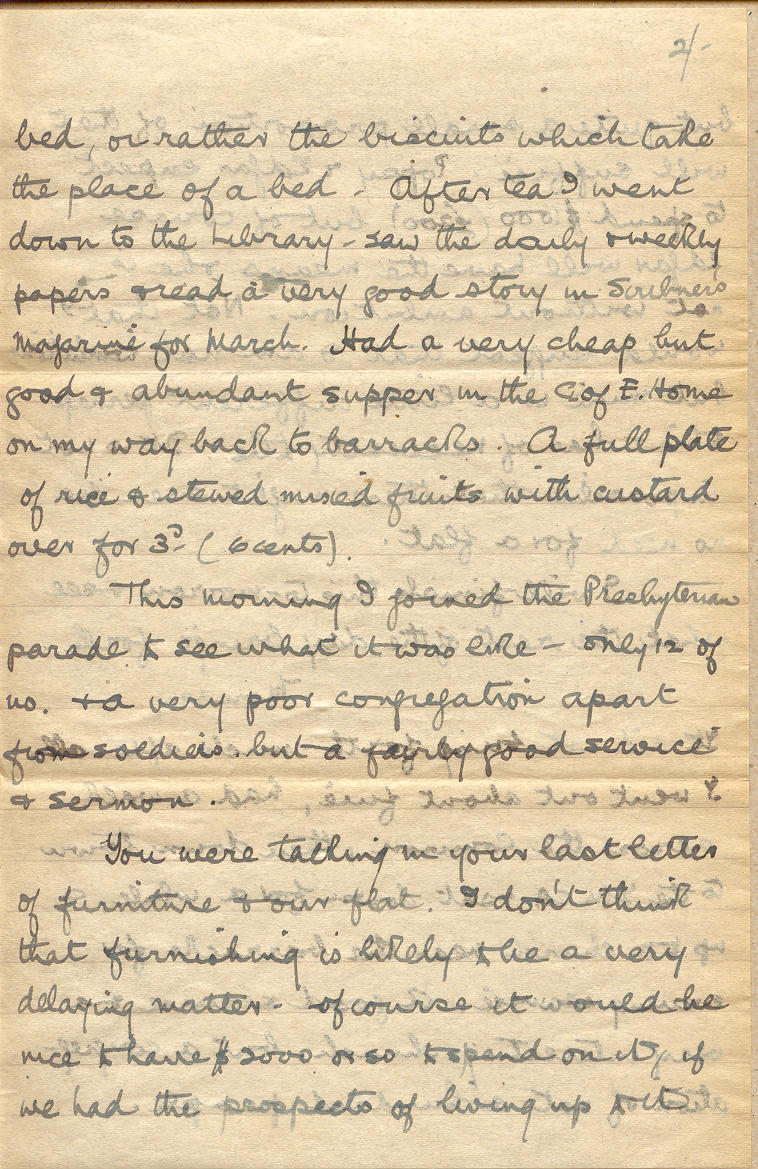 2/-
bed, or rather the biscuits which take
the place of a bed - After tea I went
down to the Library - saw the daily & weekly
papers & read a very good story in Scribner's
magazine for March. Had a very cheap but
good & abundant supper in the C. of E. Home
on my way back to barracks. A full plate
of rice & stewed mixed fruits with custard
over for 3d - (6 cents).
This morning I joined the Presbyterian
parade to see what it was like - only 12 of
us. & a very poor congregation apart
from soldiers. but a fairly good service
& sermon.
You were talking in your last letter
of furniture & our flat. I don't think
that furnishing is likely to be a very
delaying matter - of course it would be
nice to have $2000 or so to spend on it, if
we had the prospects of living up to it